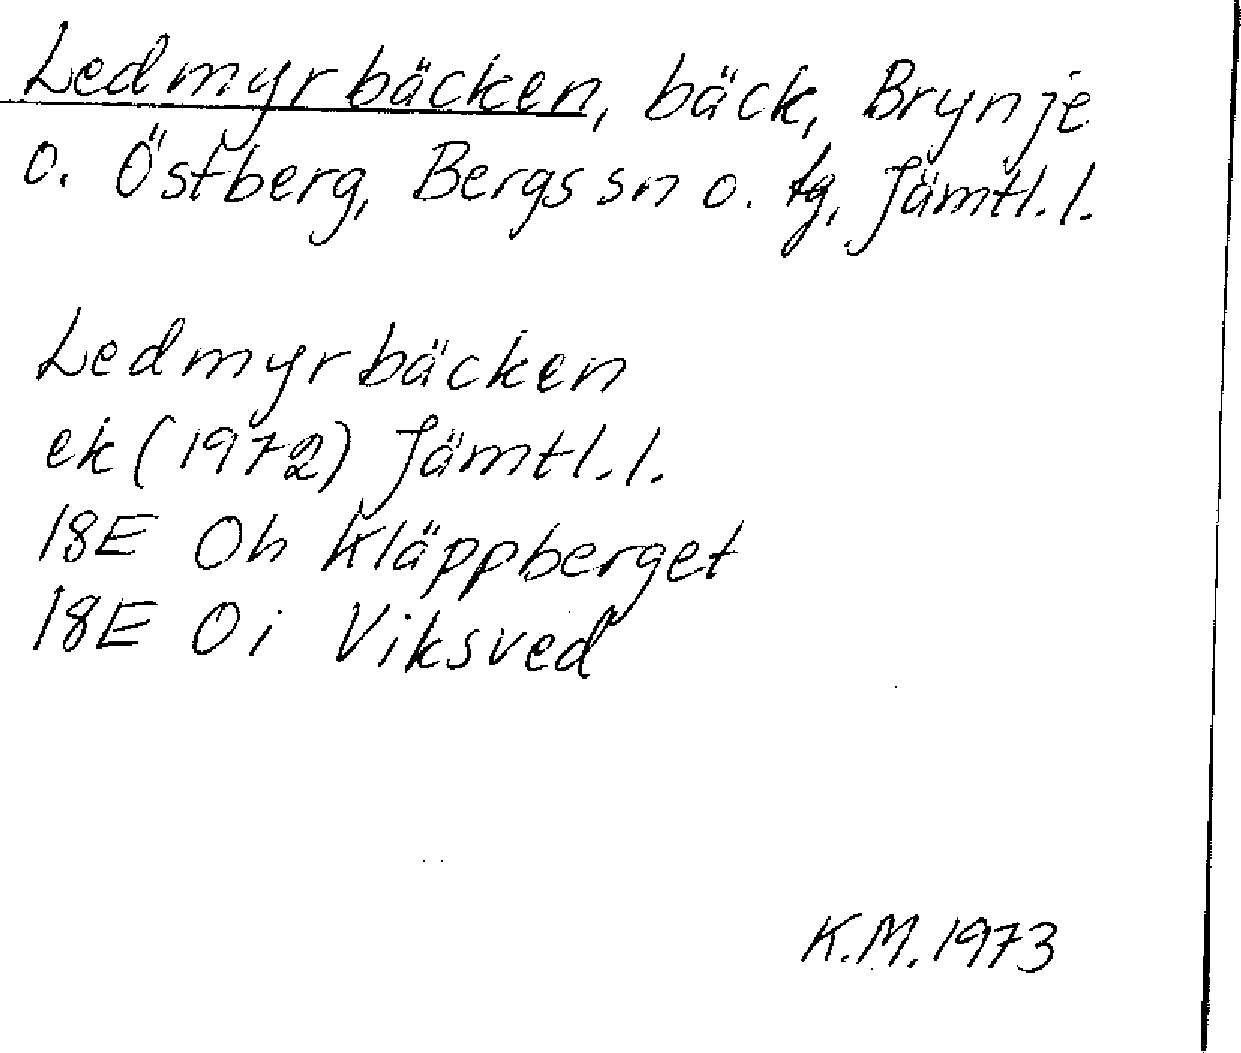 Ledmyrbäcken, bäck, Brynje
o. Östberg, Bergs sn o. tg, Jämtl. l.
Ledmyrbäcken
ek (1972) Jämtl. l.
18E 0h Kläppberget
18E 0i Viksved
K.M. 1973